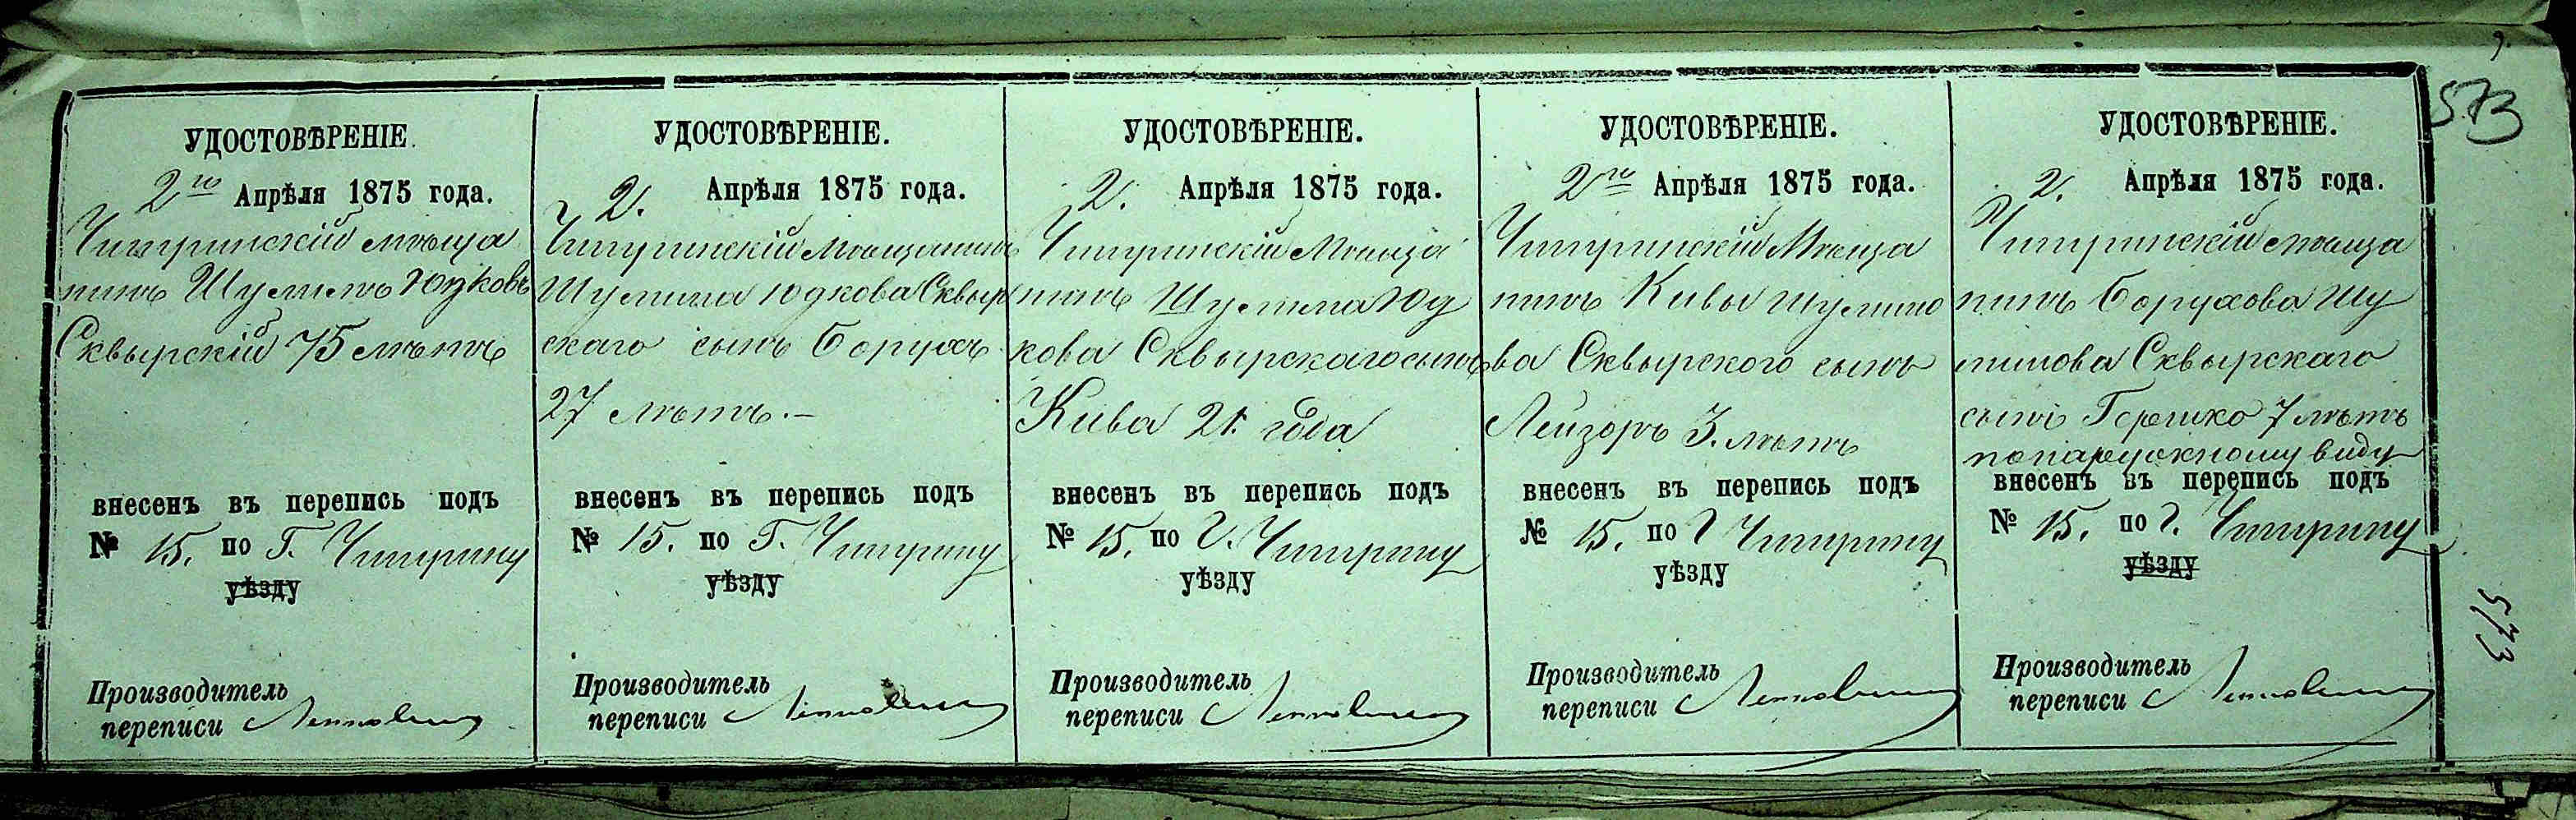 573
УДОСТОВѢРЕНІЕ.
2го Апрѣля 1875 года.
Чигиринскій мѣща
нинъ Шулимъ Юдковъ
Сквырскій 75 лѣтъ
внесенъ въ перепись подъ
№ 15. по Г. Чигирину
уѣзду
Производитель
переписи
УДОСТОВѢРЕНІЕ.
2. Апрѣля 1875 года.
Чигиринскій мѣщанинъ
Шулима Юдкова Сквыр
скаго сынъ Борухъ
27 лѣтъ.—
внесенъ въ перепись подъ
№ 15. по Г. Чигирину
уѣзду
Производитель
переписи
УДОСТОВѢРЕНІЕ.
2. Апрѣля 1875 года.
Чигиринскій Мѣща
нинъ Шулима Юд
кова Сквырскаго сынъ
Кива 21. года
внесенъ въ перепись подъ
№ 15. по Г. Чигирину
уѣзду
Производитель
переписи
УДОСТОВѢРЕНІЕ.
2го Апрѣля 1875 года.
Чигиринскій Мѣща
нинъ Кивы Шулимо
ва Сквырского сынъ
Лейзоръ 3. лѣтъ
внесенъ въ перепись подъ
№ 15. по Г Чигирину
уѣзду
Производитель
переписи
УДОСТОВѢРЕНІЕ.
2. Апрѣля 1875 года.
Чигиринскій мѣща
нинъ Борухова Шу
лимова Сквырскаго
сынъ Гершко 7 лѣтъ
по наружному виду
внесенъ въ перепись подъ
№ 15. по Г. Чигирину
уѣзду
Производитель
переписи
573